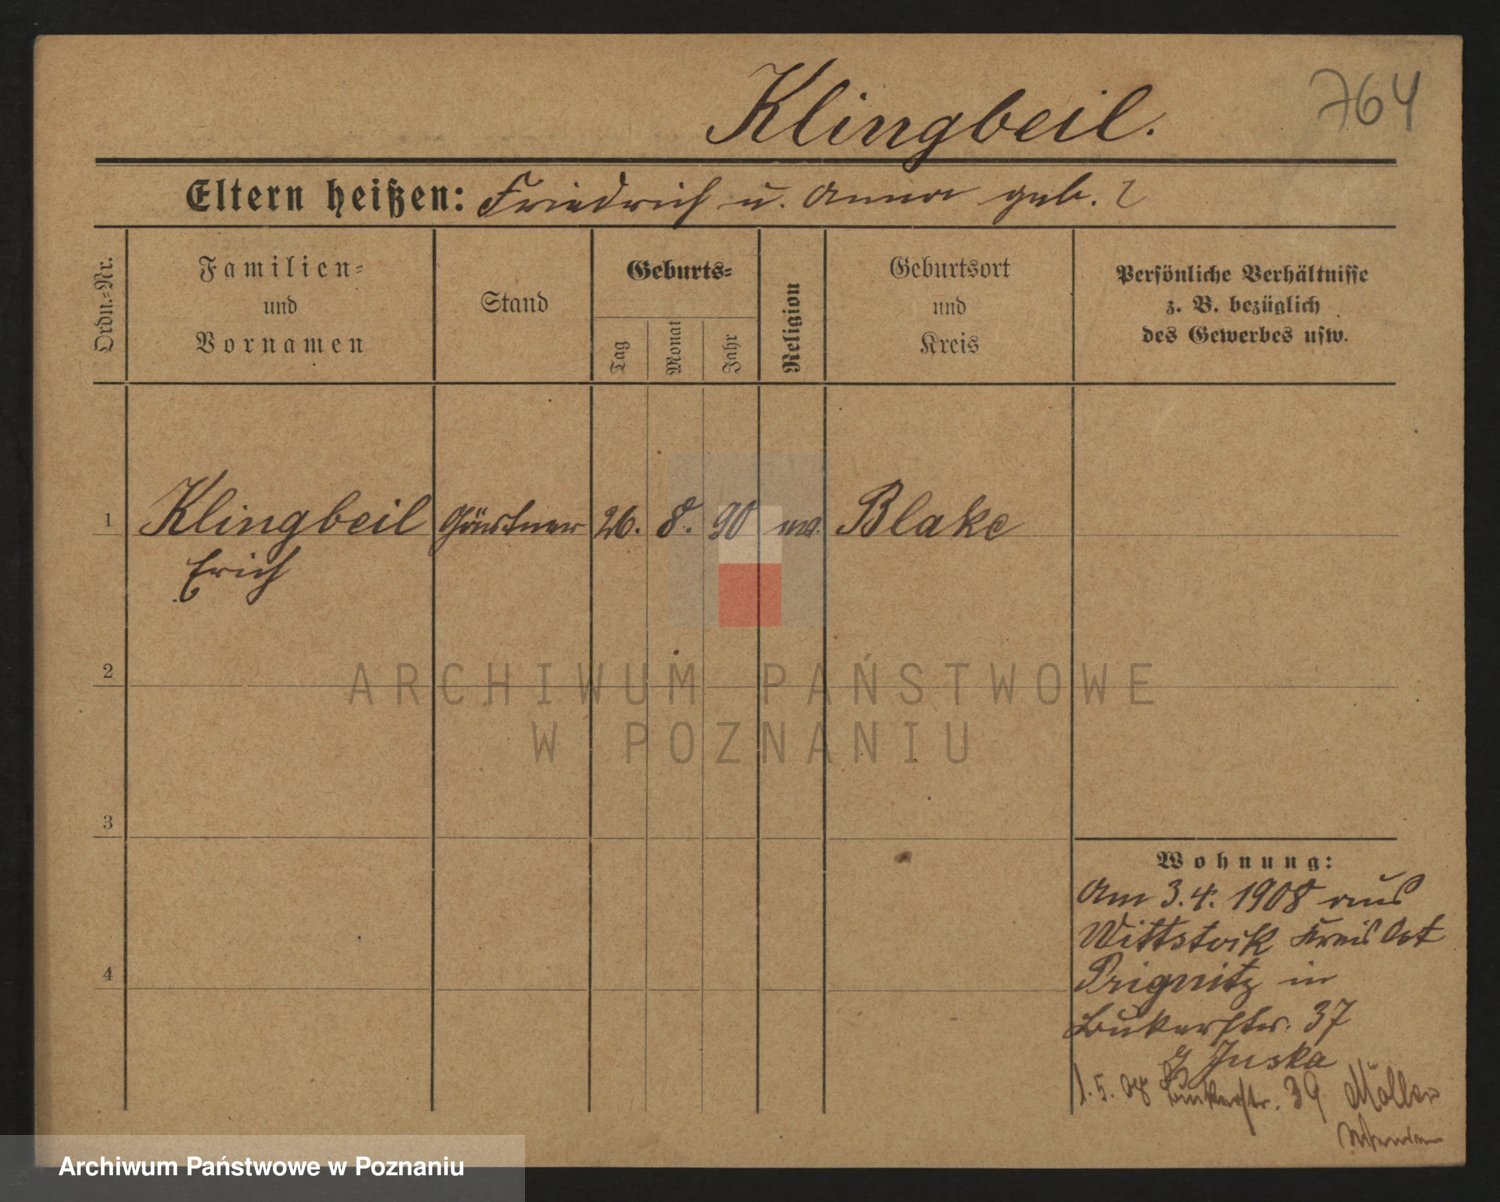 Klingbeil.
764
Eltern heißen: Friedrich u. Anna geb. ?
Ordn.=Nr.
Familien=
und
Vornamen
Stand
Geburts=
Tag
Monat
Jahr
Religion
Geburtsort
und
Kreis
Persönliche Verhältnisse
z. B. bezüglich
des Gewerbes usw.
1 Klingbeil Gärtner 26. 8. 90 ev. Blake
Erich
2
3
4
Wohnung:
Am 3.4.1908 aus
Wittstock Kreis Ost
Prignitz in
Bukerstr. 37
Juska
1.5.08 Bukerstr. 39 Möller
ARCHIWUM PAŃSTWOWE
W POZNANIU
Archiwum Państwowe w Poznaniu